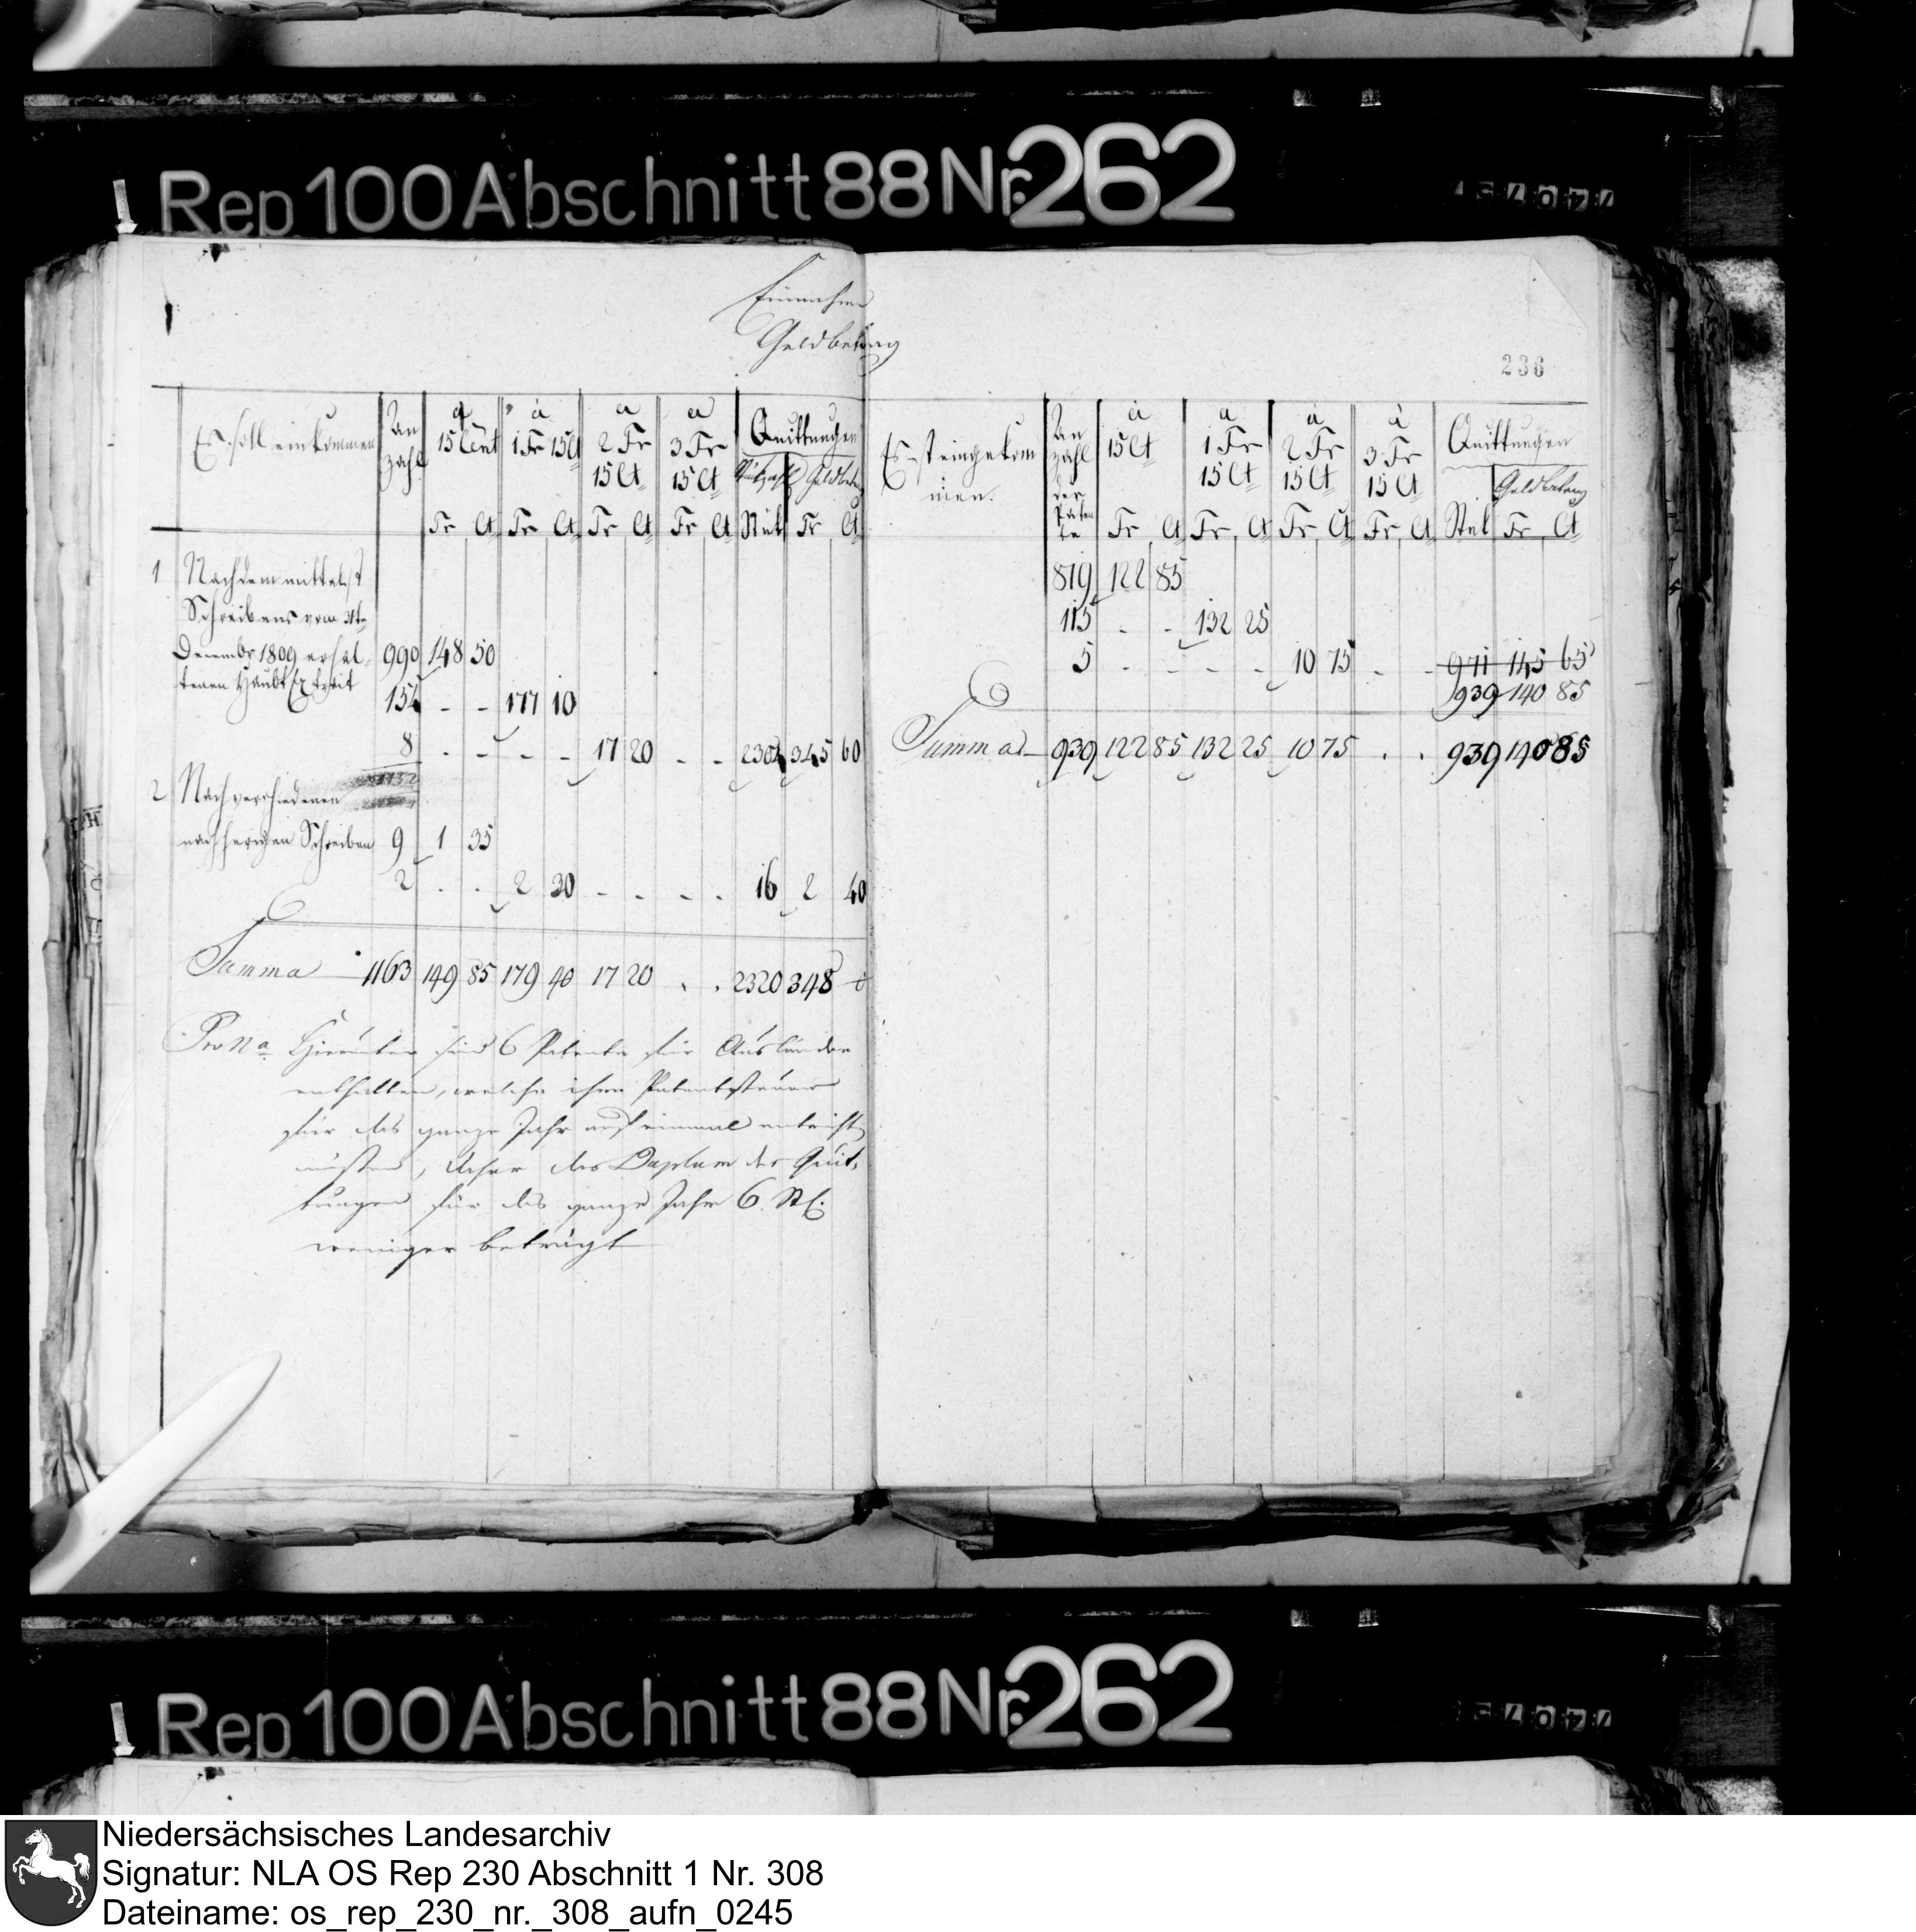 Rep 100 Abschnitt 88 Nr. 262
Einnahme
Geldbetrag
236
Es soll einkommen
An
zahl
a
15 Cent
Fr Ct
à
1 Fr 15 Ct
Fr Ct
a
2 Fr
15 Ct
Fr Ct
a
3 Fr
15 Ct
Fr Ct
Quittungen
Stückzahl Geldbetrag
Stük Fr Ct
1 Nachdem mittelst
Schreibens vom 31te
Decembr 1809 erhal-
tenen Haubt Extrait
990 148 50
154 - - 177 10
8 - - - - 17 20 - - 2304 345 60
2 Nach verschiedenen
nachherigen Schreiben 9 1 35
2 - - 2 30 - - - - 16 2 40
Summa 1163 149 85 179 40 17 20 - - 2320 348 -
Pro Na Hierunter sind 6 Patente für Ausländer
enthalten, welche ihre Patentsteuer
für das ganze Jahr auf einmal entricht
mußten, daher das Duplum der Quit-
tungen für das ganze Jahr 6 Stk.
weniger beträgt
Es ist eingekom
men.
An
zahl
der
Paten
te
à
15 Ct
Fr Ct
a
1 Fr
15 Ct
Fr Ct
a
2 Fr
15 Ct
Fr Ct
à
3 Fr
15 Ct
Fr Ct
Quittungen
Geldbetrag
Stük Fr Ct
819 122 85
115 - - 132 25
5 - - - - 10 75 - - 971 145 65
939 140 85
Summa 939 122 85 132 25 10 75 . . 939 140 85
Rep 100 Abschnitt 88 Nr. 262
Niedersächsisches Landesarchiv
Signatur: NLA OS Rep 230 Abschnitt 1 Nr. 308
Dateiname: os_rep_230_nr._308_aufn_0245